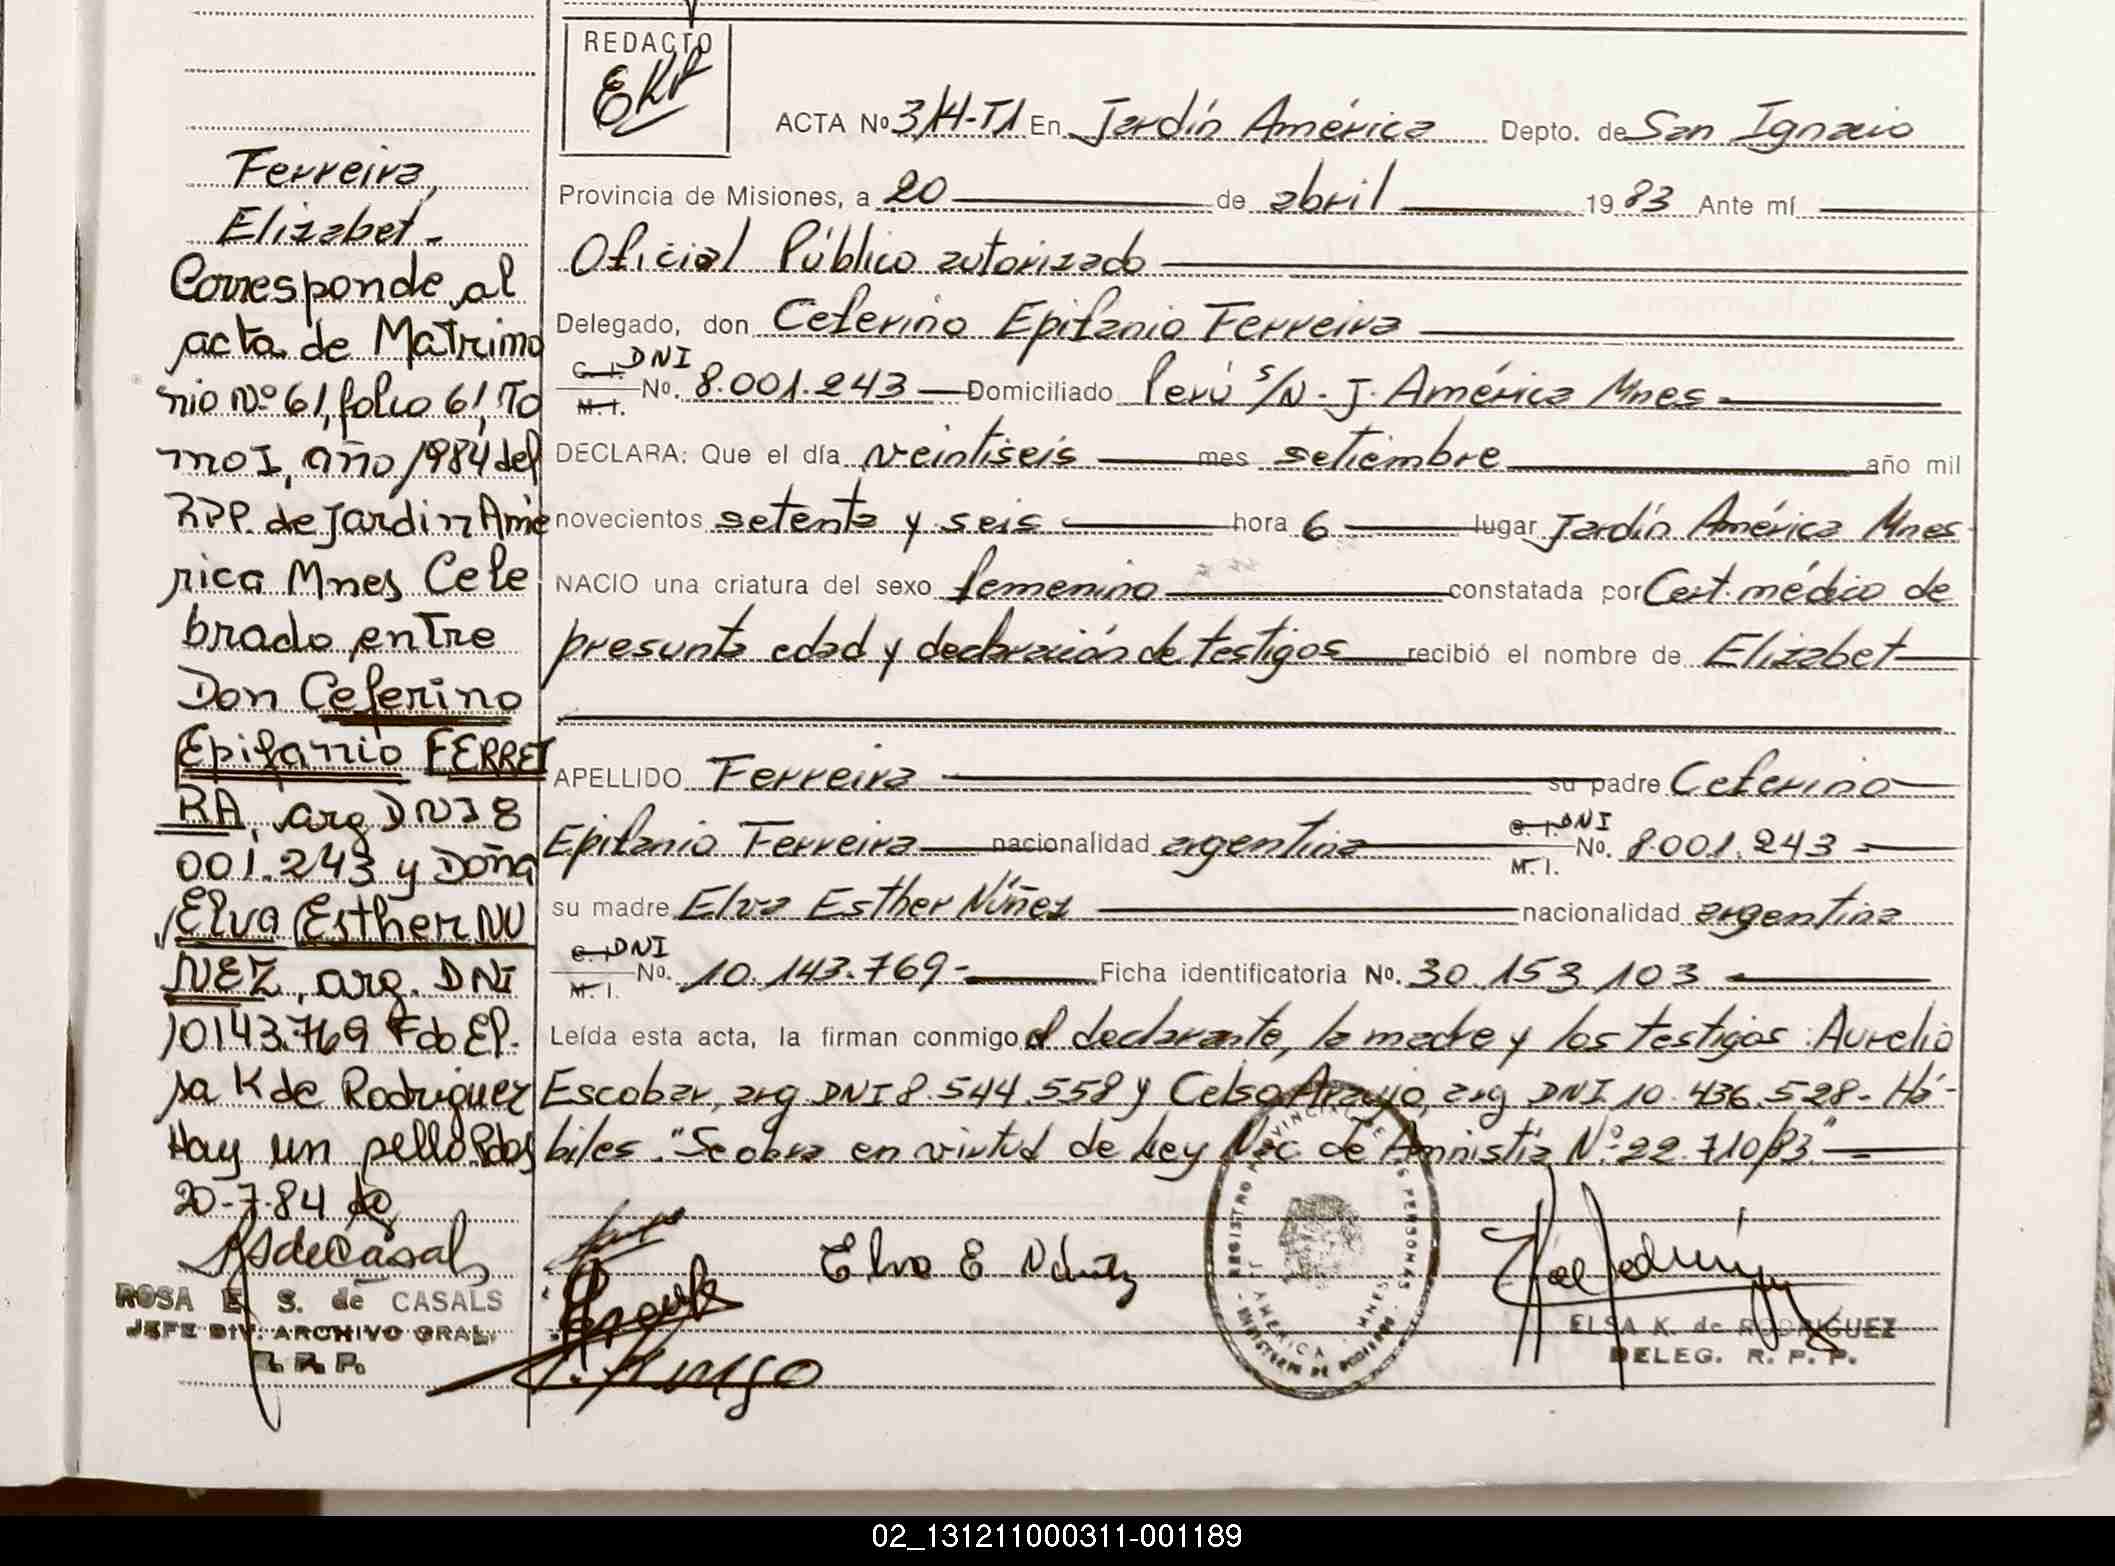 REDACTO
EKR
ACTA Nº 314-T1 En Jardín América Depto. de San Ignacio
Provincia de Misiones, a 20 de abril 1983 Ante mí
Oficial Público autorizado
Delegado, don Ceferino Epifanio Ferreira
C. I. DNI
M. I. No. 8.001.243 Domiciliado Perú s/N. J. América Mnes
DECLARA: Que el día veintiseis mes setiembre año mil
novecientos setenta y seis hora 6 lugar Jardín América Mnes
NACIO una criatura del sexo femenino constatada por Cert. médico de
presunta edad y declaración de testigos recibió el nombre de Elizabet
APELLIDO Ferreira su padre Ceferino
Epifanio Ferreira nacionalidad argentina C. I. DNI M. I. No. 8.001.243
su madre Elva Esther Núñez nacionalidad argentina
C. I. DNI
M. I. No. 10.143.769- Ficha identificatoria No. 30.153.103
Leída esta acta, la firman conmigo el declarante, la madre y los testigos: Aurelio
Escobar, arg DNI 8.544.558 y Celso Araujo, arg DNI 10.436.528- Há-
biles. "Se obra en virtud de Ley Nac. de Amnistía Nº 22.710/83."
Elva E Núñez
ELSA K. de RODRIGUEZ
DELEG. R. P. P.
Ferreira,
Elizabet -
Corresponde al
acta de Matrimo
nio Nº 61, folio 61, To
mo I, año 1984 del
RPP. de Jardin Amé
rica Mnes Cele
brado entre
Don Ceferino
Epifanio FERREI
RA, arg DNI 8
001.243 y Doña
Elva Esther NU
ÑEZ, arg. DNI
10143.769 Fdo El-
sa K de Rodriguez
Hay un sello Pdas
20-7-84
ROSA E. S. de CASALS
JEFE DIV. ARCHIVO GRAL.
R. P. P.
02_131211000311-001189